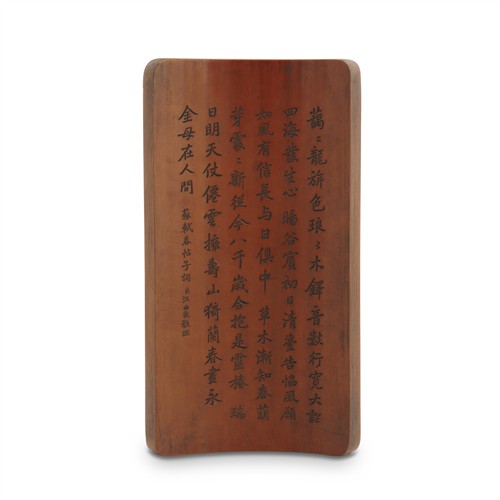 藹〻龍旂色琅〻木鐸音數行寬大詔
四海發生心暘谷賓初日清臺告協風願
如風有信長与日俱中草木漸知春萌
芽處〻新從今八千歲合抱是靈椿瑞
日明天仗僊雲擁壽山猗蘭春晝永
金母在人間 蘇軾春帖子詞